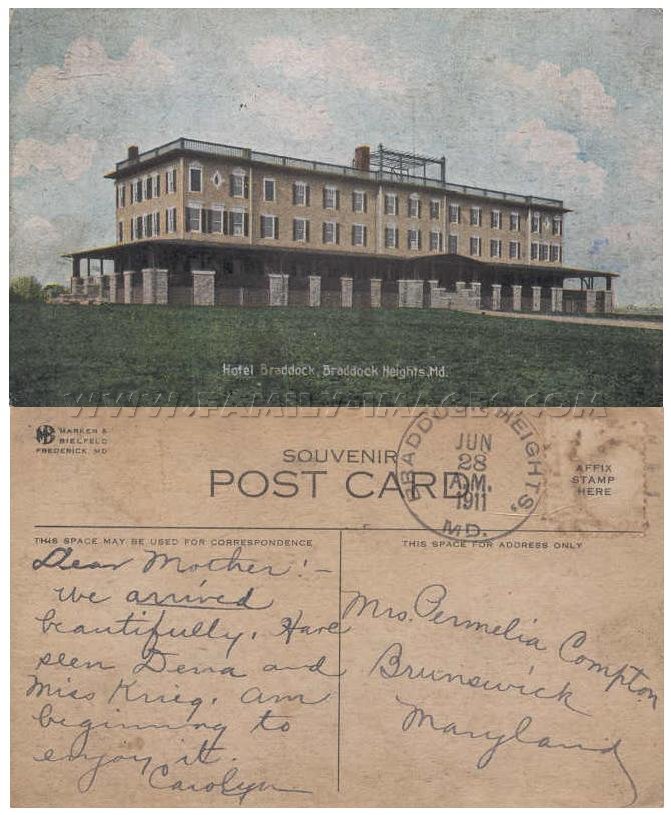 Hotel Braddock, Braddock Heights, Md.
WWW.FAMILY-IMAGES.COM
MB
MARKEN &
BIELFELD
FREDERICK, MD
SOUVENIR
POST CARD
BRADDOCK HEIGHTS,
JUN
28
A.M.
1911
MD.
AFFIX
STAMP
HERE
THIS SPACE MAY BE USED FOR CORRESPONDENCE
THIS SPACE FOR ADDRESS ONLY
Dear Mother:-
We arrived
beautifully. Have
seen Deva and
Miss Krieg. Am
beginning to
enjoy it.
Carolyn
Mrs. Permelia Compton
Brunswick
Maryland